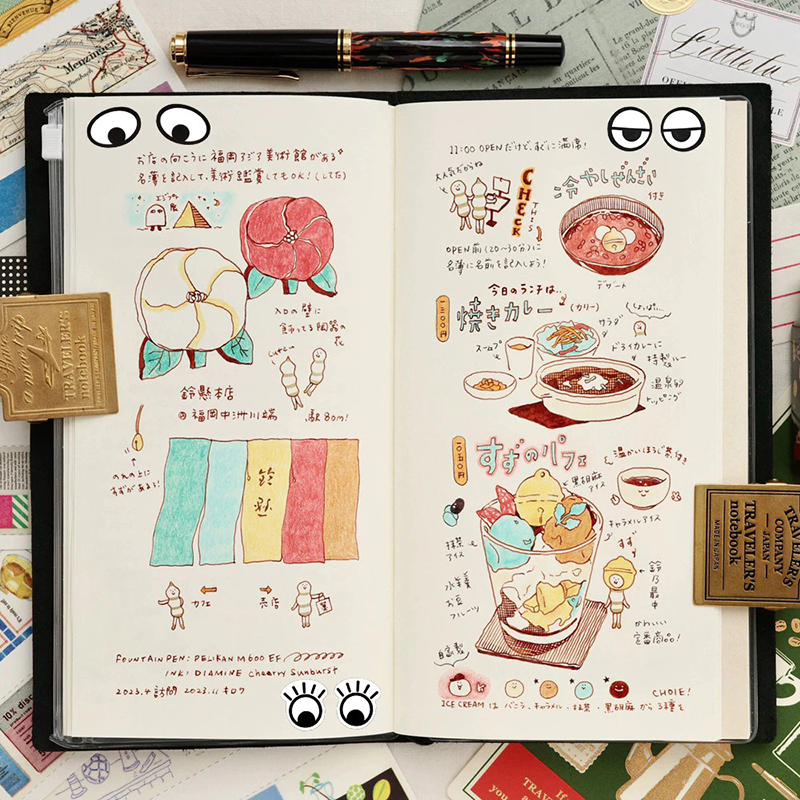 お店の向こうに福岡アジア美術館がある
名簿を記入して、美術鑑賞してもOK!(してた)
エジプト展
入口の壁に
飾ってる陶器の
花
鈴懸本店
@福岡中洲川端 駅80m!
のれんの上に
すずがある!
鈴懸
カフェ
売店
FOUNTAIN PEN: PELIKAN M600 EF
INK: DIAMINE Cheerry Sunburst
2023.4 訪問 2023.11 キロク
11:00 OPENだけど、すぐに満席!
大人気だからね
CHECK
THIS
OPEN前(20~30分)に
名簿に名前を記入しよう!
冷やしぜんざい
付き
デザート
今日のランチは..
焼きカレー
(カリー)
サラダ
スープ
ドライカレーに
特製ルー
温泉卵
トッピング
すずのパフェ
温かいほうじ茶付き
黒胡麻
アイス
キャラメルアイス
抹茶
アイス
水羊羹
お豆
フルーツ
すず
鈴乃最中
かわいい
定番商品!
自家製
CHOIE!
ICE CREAM は バニラ、キャラメル、抹茶・黒胡麻から3種を
Menzingen
BIENVENUE
TRAVELER'S
notebook
TRAVELER'S
COMPANY
JAPAN
TRAVELER'S
notebook
MADE IN JAPAN
10% disc